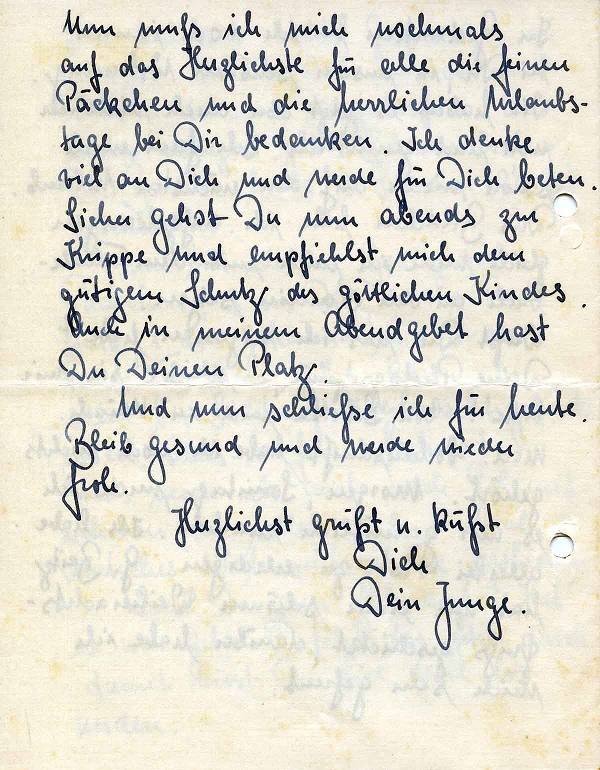 Nun muß ich mich nochmals
auf das Herzlichste für alle die feinen
Päckchen und die herrlichen Urlaubs-
tage bei Dir bedanken. Ich denke
viel an Dich und werde für Dich beten.
Sicher gehst Du nun abends zur
Krippe und empfiehlst mich dem
gütigem Schutz des göttlichen Kindes.
Auch in meinem Abendgebet hast
Du Deinen Platz.
Und nun schließe ich für heute.
Bleib gesund und werde wieder
froh.
Herzlichst grüßt u. küßt
Dich
Dein Junge.